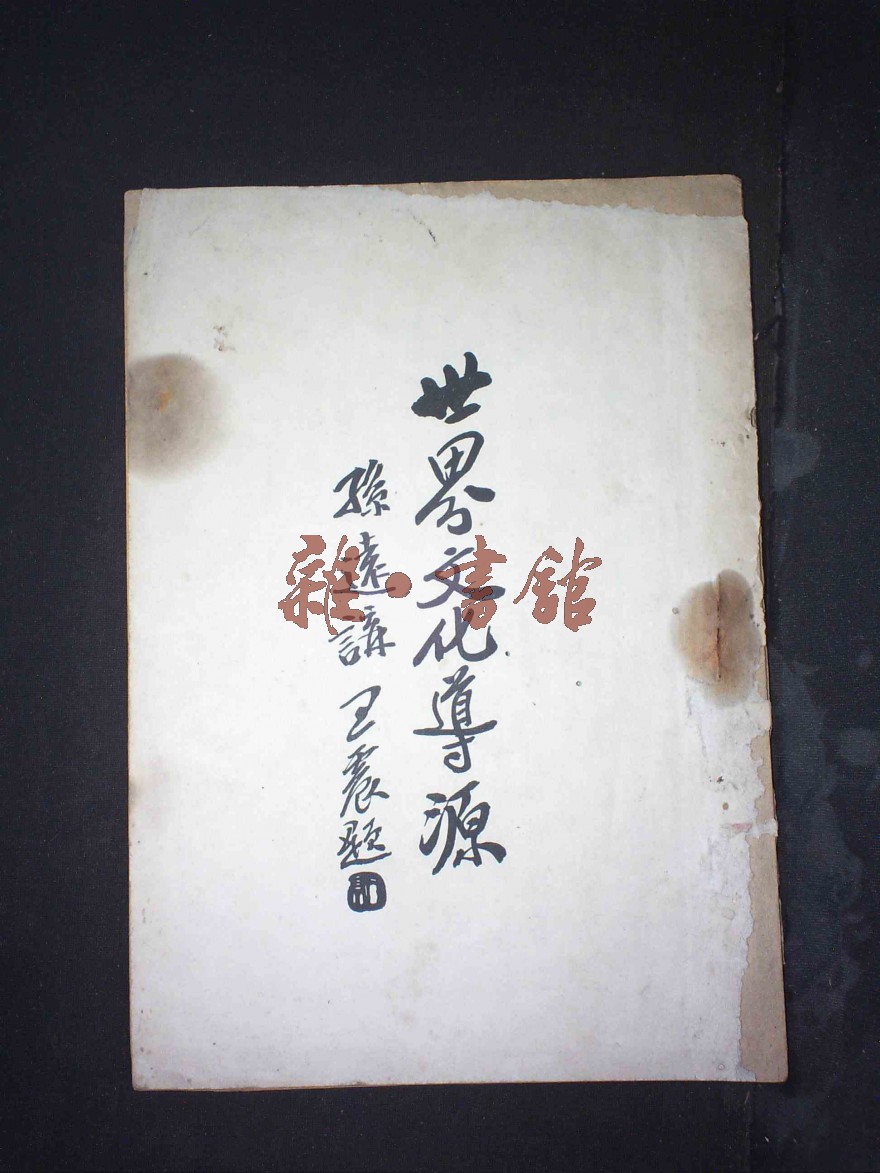 世界文化導源
孫遠講 王震題
雜·書館